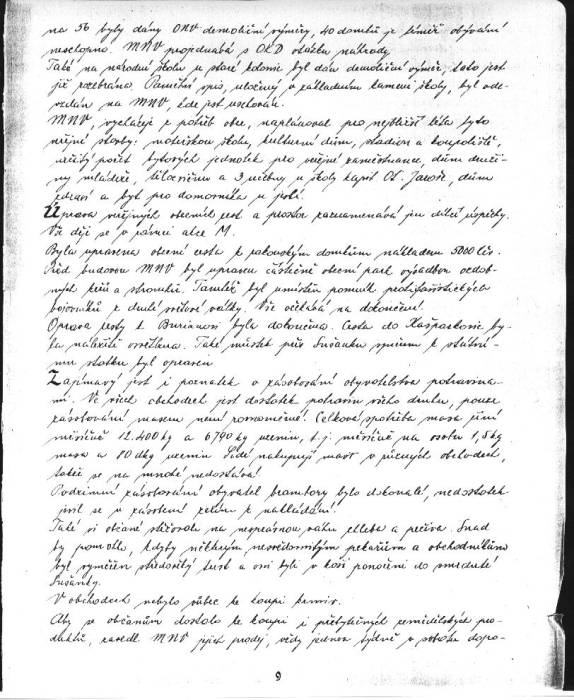 na 56 byly dány ONV demoliční výměry, 40 domků je téměř obývání
neschopno. MNV projednává s OKD otázku náhrady.
Také na národní školu u staré kolonie byl dán demoliční výměr, tato jest
již rozebrána. Pamětní spis, uložený v základním kameni školy, byl ode-
vzdán na MNV, kde jest uschován.
MNV, vycházeje z potřeb obce, naplánoval pro nejbližší léta tyto
veřejné stavby: mateřskou školu, kulturní dům, stadion a koupaliště,
určitý počet bytových jednotek pro veřejné zaměstnance, dům druži-
ny mládeže, tělocvičnu a 3 učebny u školy kapit. Ot. Jaroše, dům
zdraví a byt pro domovníka u školy.
Úprava veřejných obecních cest a prostor zaznamenává jen dílčí úspěchy.
Vše děje se v rámci akce M.
Byla upravena obecní cesta k rakouským domkům nákladem 5000 Kčs.
Před budovou MNV byl upraven částečně obecní park výsadbou ozdob-
ných keřů a stromků. Tamtéž byl umístěn pomník protifašistických
bojovníků z druhé světové války. Vše očekává na dokončení.
Oprava cesty k Burianovi byla dokončena. Cesta do Kašparkovic by-
la náležitě osvětlena. Také můstek přes Sušanku směrem k státní-
mu statku byl opraven
Zajímavý jest i poznatek o zásobování obyvatelstva potravina-
mi. Ve všech obchodech jest dostatek potravin všeho druhu, pouze
zásobování masem není rovnoměrné! Celková spotřeba masa činí
měsíčně 12.400 kg a 6790 kg uzenin, t.j. měsíčně na osobu 1,5 kg
masa a 80 dkg uzenin. Lidé nakupují maso v různých obchodech,
takže se na mnohé nedostává!
Podzimní zásobování obyvatel brambory bylo dokonalé, nedostatek
jevil se v zásobení zelím k nakládání!
Také si občané stěžovali na nesprávnou váhu chleba a pečiva. Snad
by pomohlo, kdyby některým nesvědomitým pekařům a obchodníkům
byl vyměřen středověký trest a oni byli v koši ponořeni do smraduté
Sušanky.
V obchodech nebylo vůbec ke koupi krmiv.
Aby se občanům dostalo ke koupi i přebytečných zemědělských pro-
duktů, zavedl MNV jejich prodej, vždy jednou týdně v sobotu dopo-
9